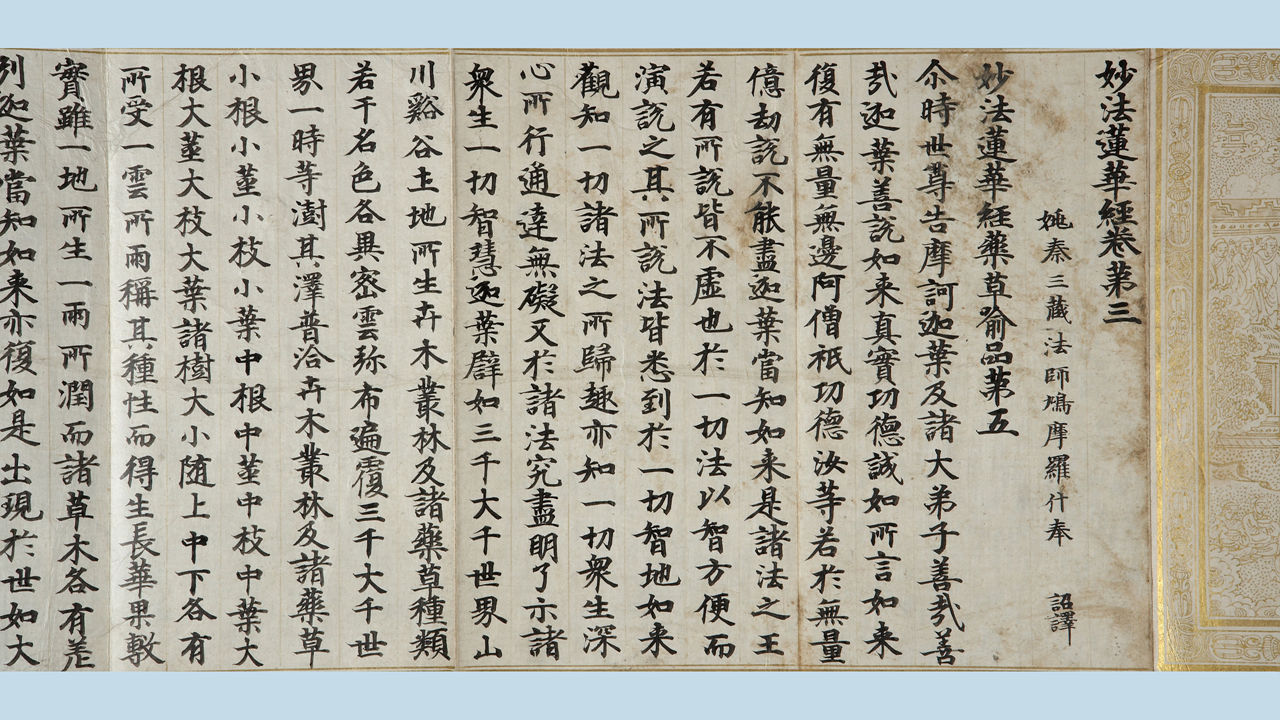 妙法蓮華經卷第三
姚秦三藏法師鳩摩羅什奉 詔譯
妙法蓮華經藥草喻品第五
尒時世尊告摩訶迦葉及諸大弟子善㢤善
㢤迦葉善說如来真實功德誠如所言如来
復有無量無邊阿僧祇功德汝等若於無量
億劫說不能盡迦葉當知如来是諸法之王
若有所說皆不虛也於一切法以智方便而
演說之其所說法皆悉到於一切智地如来
觀知一切諸法之所歸趣亦知一切衆生深
心所行通達無礙又於諸法究盡明了示諸
衆生一切智慧迦葉譬如三千大千世界山
川谿谷土地所生卉木叢林及諸藥草種類
若干名色各異密雲弥布遍覆三千大千世
界一時等澍其澤普洽卉木叢林及諸藥草
小根小莖小枝小葉中根中莖中枝中葉大
根大莖大枝大葉諸樹大小随上中下各有
所受一雲所雨稱其種性而得生長華果敷
實雖一地所生一雨所潤而諸草木各有差
別迦葉當知如来亦復如是出現於世如大